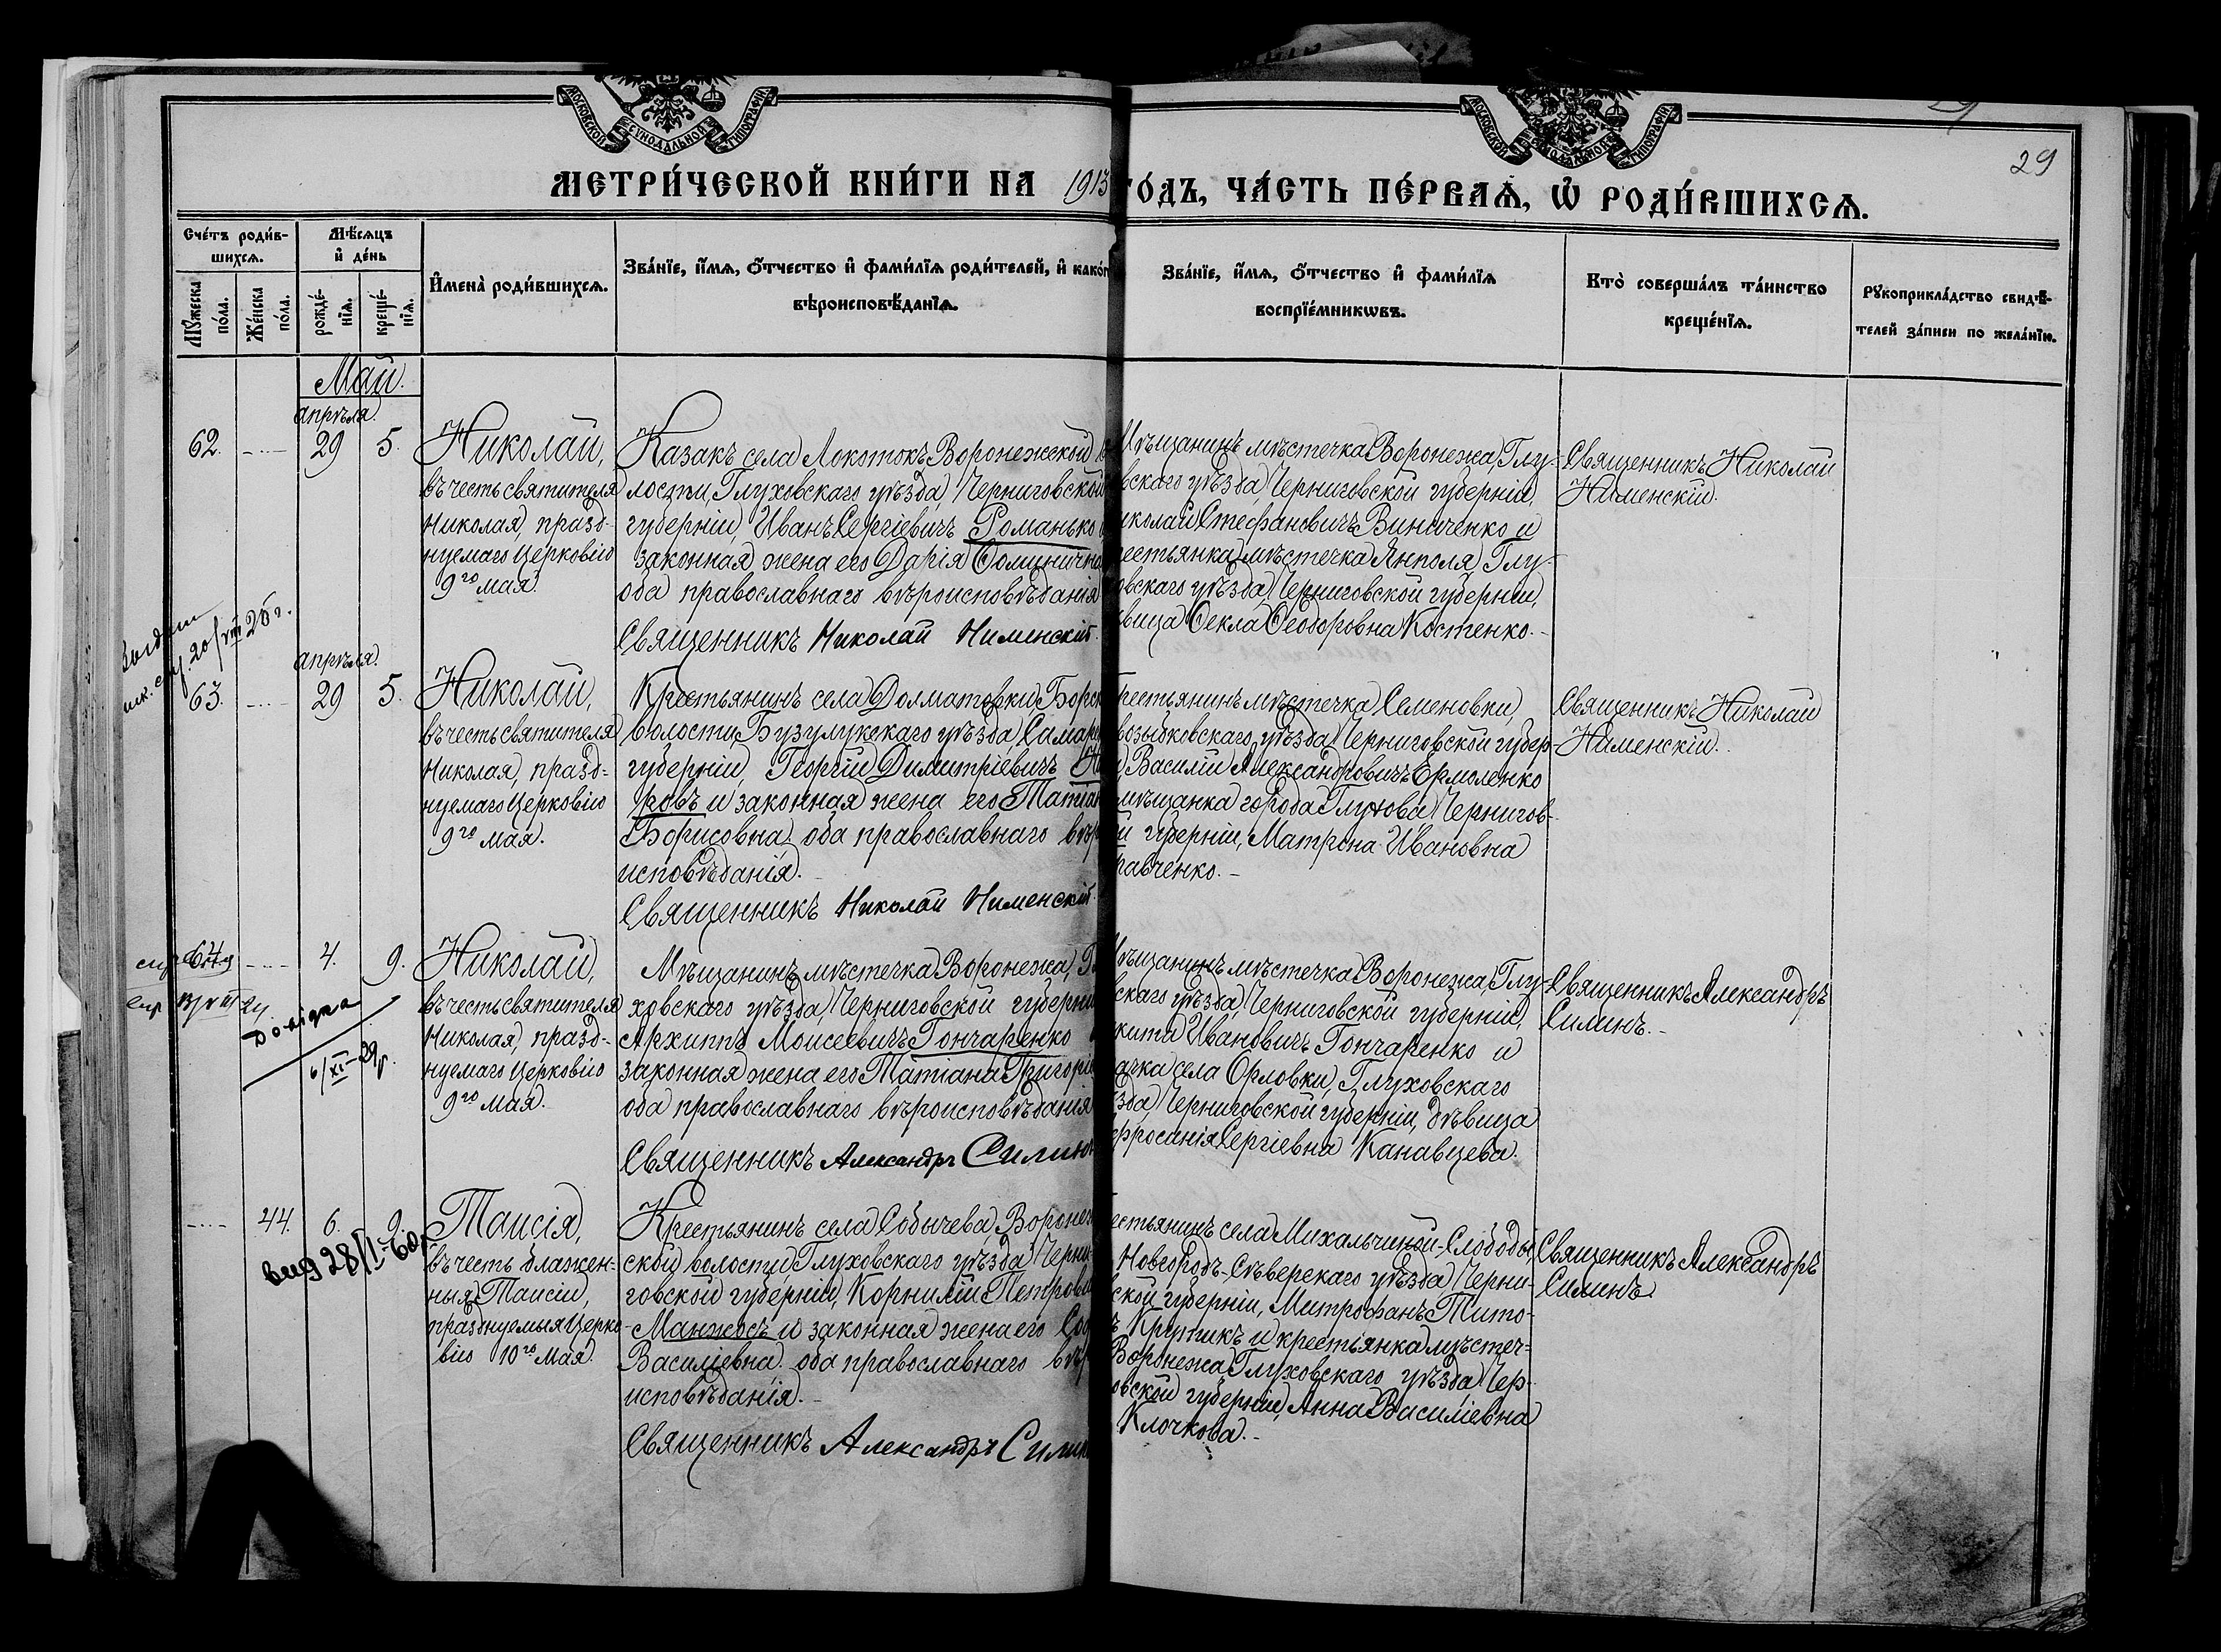 МОСКОВСКОЙ СУНОДАЛЬНОЙ ТИПОГРАФІИ
МОСКОВСКОЙ СУНОДАЛЬНОЙ ТИПОГРАФІИ
29
МЕТРИ́ЧЕСКОЙ КНИ́ГИ НА 1913
ГО́ДЪ, ЧА́СТЬ ПЕ́РВАѦ, Ѡ РОДИ́ВШИХСѦ.
Сче́тъ роди́в-
шихсѧ.
Мꙋ́жеска
по́ла.
Же́нска
по́ла.
Мѣ́сѧцъ
и҆ де́нь
рожде́-
нїѧ.
креще́-
нїѧ.
И҆мена̀ роди́вшихсѧ.
Зва́нїе, и҆́мѧ, ѻ҆́тчество и҆ фами́лїѧ роди́телей, и҆ како́г
вѣроисповѣ́данїѧ.
Зва́нїе, и҆́мѧ, ѻ҆́тчество и҆ фами́лїѧ
воспрїе́мникѡвъ.
Кто̀ соверша́лъ та́инство
креще́нїѧ.
Рꙋкоприкла́дство свидѣ́-
телей за́писи по жела́нїю.
Май.
апрѣля
62. 29 5.
Николай,
въ честь святителя
Николая, празд-
нуемаго Церковію
9го мая.
Казакъ села Локотокъ, Воронежской
лости, Глуховскаго уѣзда, Черниговской
губерніи, Иванъ Сергіевичъ Романько
законная жена его Дарія Ѳоминична
оба православнаго вѣроисповѣданія
Священникъ Николай Нименскій.
Мѣщанинъ мѣстечка Воронежа, Глу-
вскаго уѣзда, Черниговской губерніи,
иколай Стефановичъ Винниченко и
рестьянка мѣстечка Янполя, Глу-
овскаго уѣзда, Черниговской губерніи,
вица Ѳекла Ѳеодоровна Костенко.-
Священникъ Николай
Нименскій.
20/VIII 25г.
апрѣля
63. 29 5.
Николай,
въ честь святителя
Николая, празд-
нуемаго Церковію
9го мая.
Крестьянинъ села Долматовки, Борск
волости, Бузулукскаго уѣзда, Самарс
губерніи, Георгій Димитріевичъ
ровъ и законная жена его Татіан
Борисовна, оба православнаго вѣр
исповѣданія.-
Священникъ Николай Нименскій.
рестьянинъ мѣстечка Семеновки,
возыбковскаго уѣзда, Черниговской губер-
, Василій Александровичъ Ермоленко
мѣщанка города Глухова, Чернигов-
й губерніи, Матрона Ивановна
равченко.-
Священникъ Николай
Нименскій.
64 4. 9.
13/VIII 24.
Довідка
6/XI-29р.
Николай,
въ честь святителя
Николая, празд-
нуемаго Церковію
9го мая.
Мѣщанинъ мѣстечка Воронежа, Гл
ховскаго уѣзда, Черниговской губерніи
Архиппъ Моисеевичъ Гончаренко
законная жена его Татіана Григорі
оба православнаго вѣроисповѣданія
Священникъ Александръ Силинъ
Мѣщанинъ мѣстечка Воронежа, Глу-
вскаго уѣзда, Черниговской губерніи,
кита Ивановичъ Гончаренко и
ачка села Орловки, Глуховскаго
ѣзда, Черниговской губерніи, дѣвица
фросанія Сергіевна Канавцева.
Священникъ Александръ
Силинъ.-
44. 6. 9.
вид 28/I-60р
Таисія,
въ честь блажен-
ныя Таисіи,
празднуемыя Церко-
вію 10го мая.
Крестьянинъ села Собычева, Воронеж
ской волости, Глуховскаго уѣзда, Черни-
говской губерніи, Корнилій Петрови
Манжосъ и законная жена его Соф
Василіевна, оба православнаго вѣр
исповѣданія.-
Священникъ Александръ Силин
естьянинъ села Михальчиной-Слободы,
Новгородъ-Сѣверскаго уѣзда, Черни-
ской губерніи, Митрофанъ Тито-
ъ Крупикъ и крестьянка мѣстеч-
Воронежа, Глуховскаго уѣзда, Чер-
овской губерніи, Анна Василіевна
Клочкова.-
Священникъ Александръ
Силинъ.